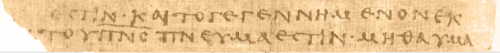 ΕΣΤΙΝ· ΚΑΙ ΤΟ ΓΕΓΕΝΝΗΜΕΝΟΝ ΕΚ
ΤΟΥ ΠΝΣ ΠΝΕΥΜΑ ΕΣΤΙΝ· ΜΗ ΘΑΥΜΑ